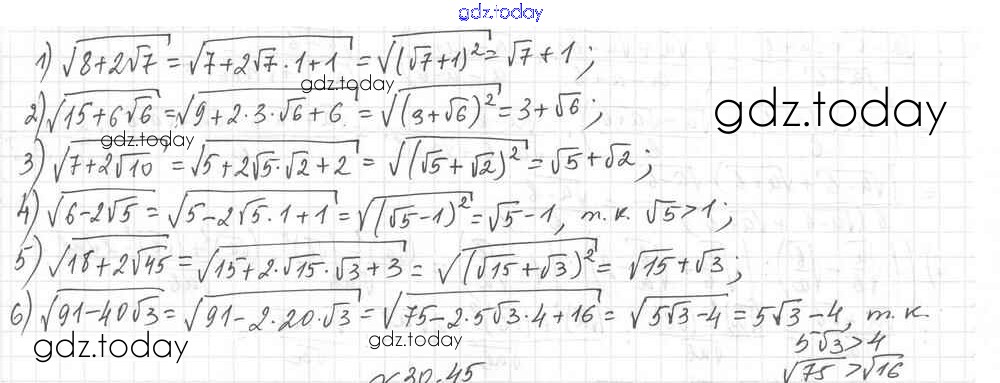 gdz.today
1) √(8+2√7) = √(7+2√7·1+1) = √((√7+1)²) = √7+1;
gdz.today
2) √(15+6√6) = √(9+2·3·√6+6) = √((3+√6)²) = 3+√6;
gdz.today
gdz.today
3) √(7+2√10) = √(5+2√5·√2+2) = √((√5+√2)²) = √5+√2;
4) √(6-2√5) = √(5-2√5·1+1) = √((√5-1)²) = √5-1, т.к. √5>1;
5) √(18+2√45) = √(15+2·√15·√3+3) = √((√15+√3)²) = √15+√3;
6) √(91-40√3) = √(91-2·20·√3) = √(75-2·5√3·4+16) = √(5√3-4) = 5√3-4, т.к.
5√3>4
gdz.today
gdz.today
√75>√16
30.45